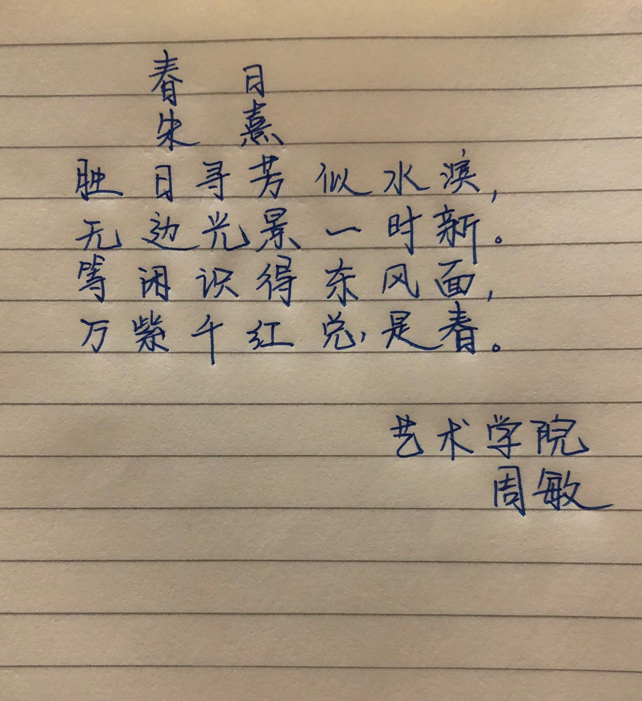 春日
朱熹
胜日寻芳似水滨,
无边光景一时新。
等闲识得东风面,
万紫千红总是春。
艺术学院
周敏